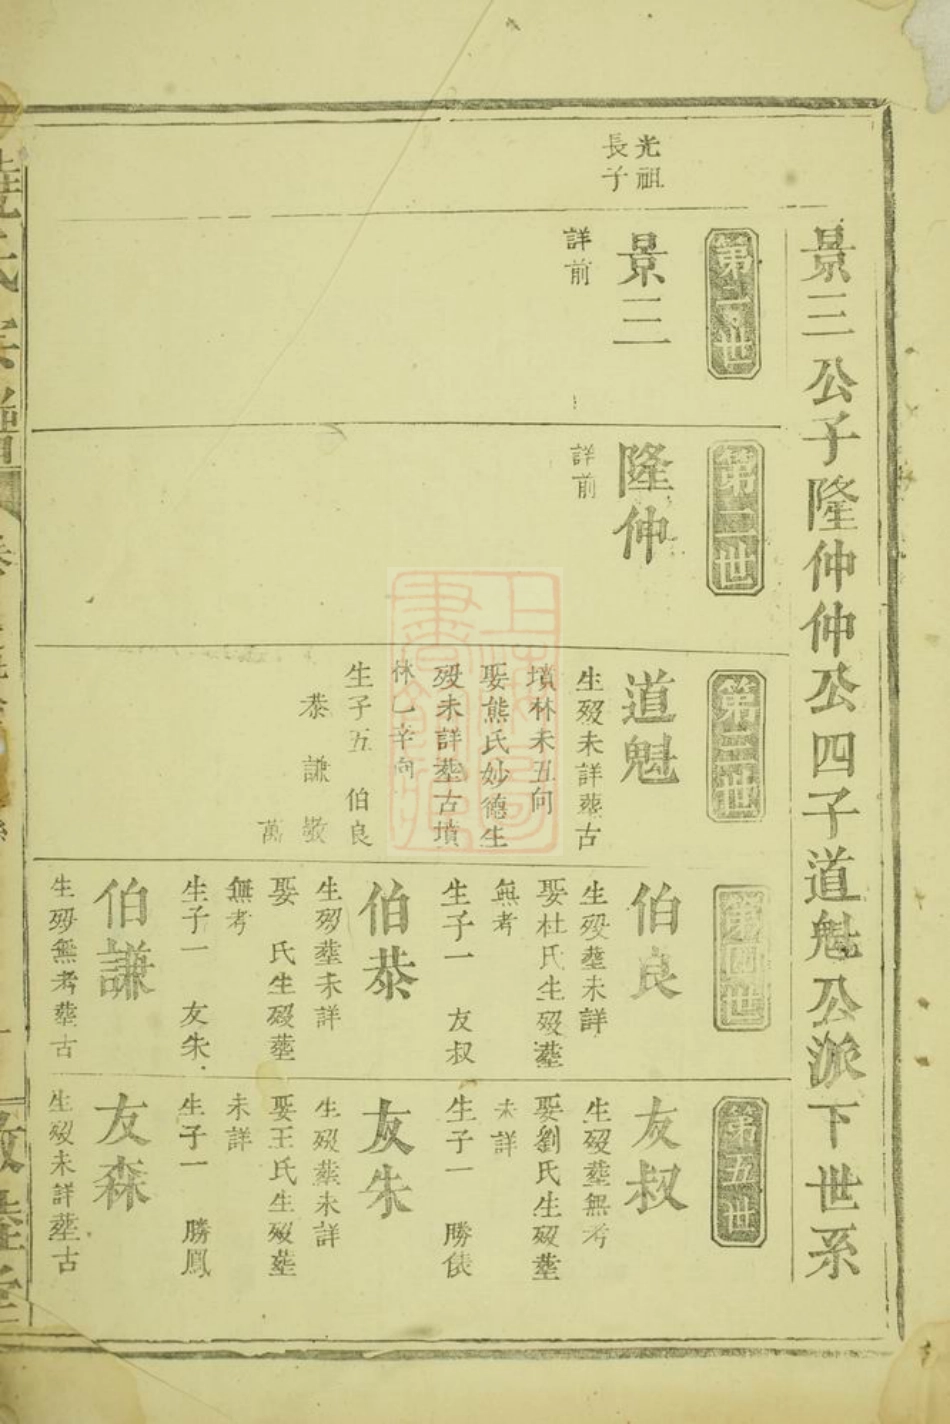 景三公子隆仲仲公四子道魁公派下世系
第一世
光祖
長子
景三
詳前
第二世
隆仲
詳前
第三世
道魁
生歿未詳葬古
墳林未丑向
娶熊氏妙德生
歿未詳塟古墳
林乙辛向
生子五 伯良
恭 謙 敬
萬
第四世
伯良
生歿塟未詳
娶杜氏生歿塟
無考
生子一 友叔
伯恭
生歿塟未詳
娶 氏生歿塟
無考
生子一 友朱
伯謙
生歿無考塟古
第五世
友叔
生歿塟無考
娶劉氏生歿塟
未詳
生子一 勝俵
友朱
生歿葬未詳
娶王氏生歿塟
未詳
生子一 勝鳳
友森
生歿未詳塟古
上海圖書館藏